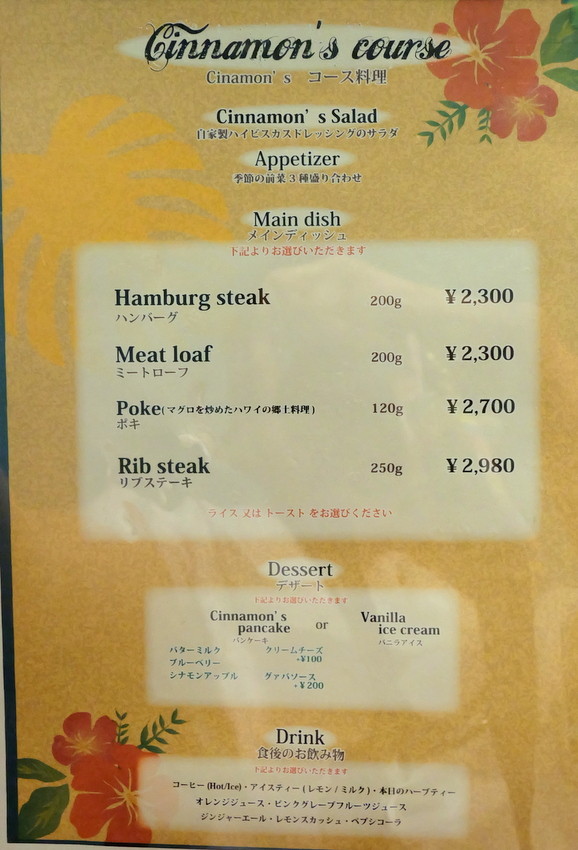 Cinnamon's course
Cinamon's コース料理
Cinnamon's Salad
自家製ハイビスカスドレッシングのサラダ
Appetizer
季節の前菜3種盛り合わせ
Main dish
メインディッシュ
下記よりお選びいただきます
Hamburg steak 200g ¥2,300
ハンバーグ
Meat loaf 200g ¥2,300
ミートローフ
Poke(マグロを炒めたハワイの郷土料理) 120g ¥2,700
ポキ
Rib steak 250g ¥2,980
リブステーキ
ライス 又は トースト をお選びください
Dessert
デザート
下記よりお選びいただきます
Cinnamon's pancake or Vanilla ice cream
パンケーキ バニラアイス
バターミルク クリームチーズ
ブルーベリー +¥100
シナモンアップル グァバソース
+¥200
Drink
食後のお飲み物
下記よりお選びいただきます
コーヒー(Hot/Ice)・アイスティー(レモン/ミルク)・本日のハーブティー
オレンジジュース・ピンクグレープフルーツジュース
ジンジャーエール・レモンスカッシュ・ペプシコーラ